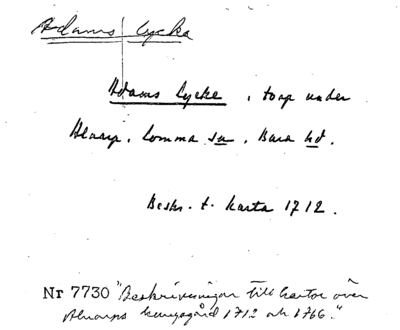 Adams lycka
Adams lycke, torp under
Alnarp, Lomma sn, Bara hd.
Beskr. t. karta 1712.
Nr 7730 "Beskrivningar till kartor över
Alnarps kungsgård 1712 och 1766."